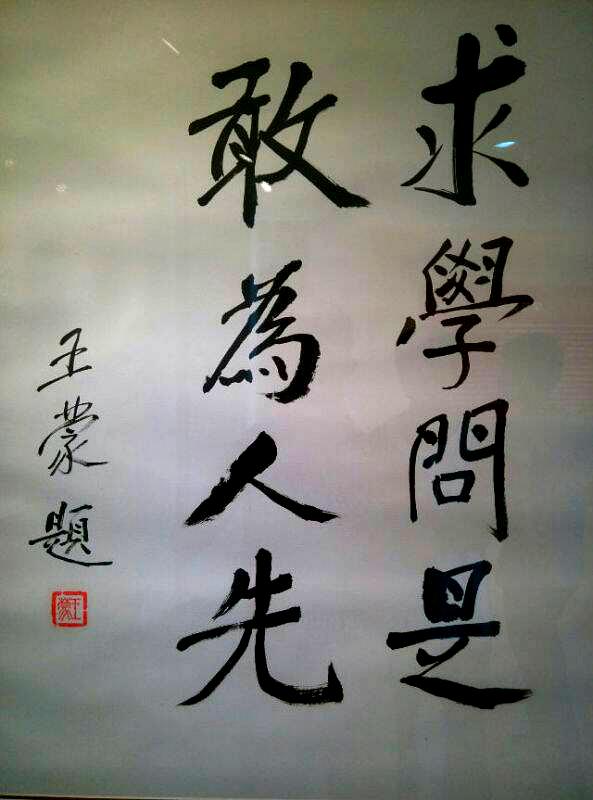 求學問是
敢為人先
王蒙題
王蒙